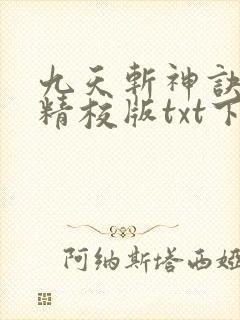 九天斩神訣
精校版txt下
阿纳斯塔西娅